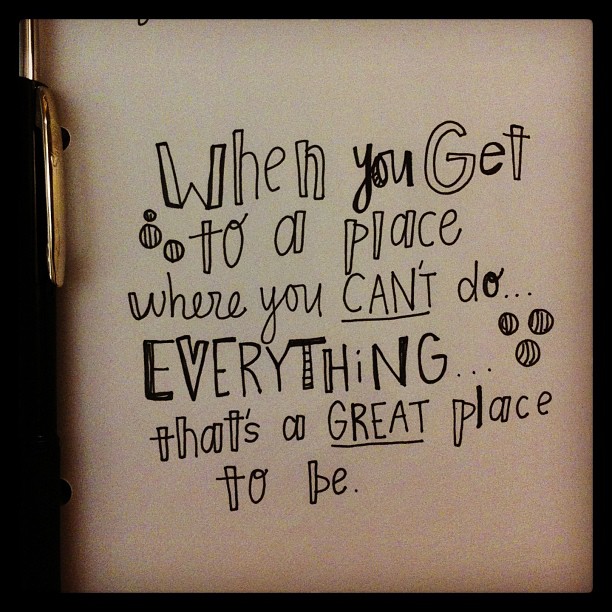 When you Get
to a place
where you CAN'T do...
EVERYTHING...
that's a GREAT place
to be.